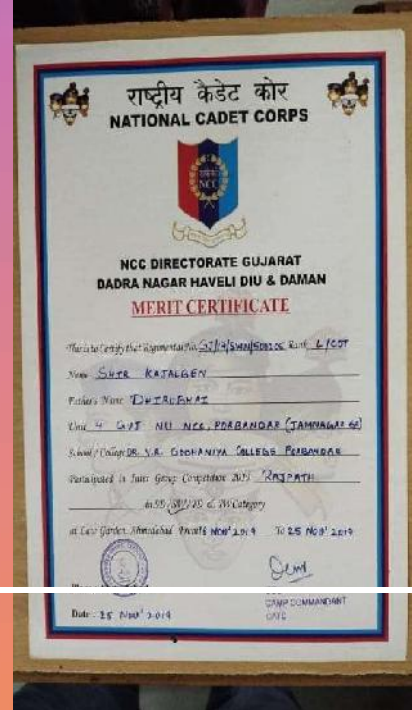 राष्ट्रीय कैडेट कोर
NATIONAL CADET CORPS
NCC
NCC DIRECTORATE GUJARAT
DADRA NAGAR HAVELI DIU & DAMAN
MERIT CERTIFICATE
This is to Certify that Regimental No. Rank L/CDT
Name SHIR KAJALBEN
Father's Name DHIRUBHAI
Unit 4 GUJ NU NCC, PORBANDAR (JAMNAGAR GP)
School / College DR. V.R. GODHANIYA COLLEGE PORBANDAR
Participated in Inter Group Competition 2019 RAJPATH
in SD / SW / JD & JW Category
at Law Garden, Ahmedabad From 16 NOV' 2019 To 25 NOV' 2019
CAMP COMMANDANT
CATC
Date : 25 NOV' 2019